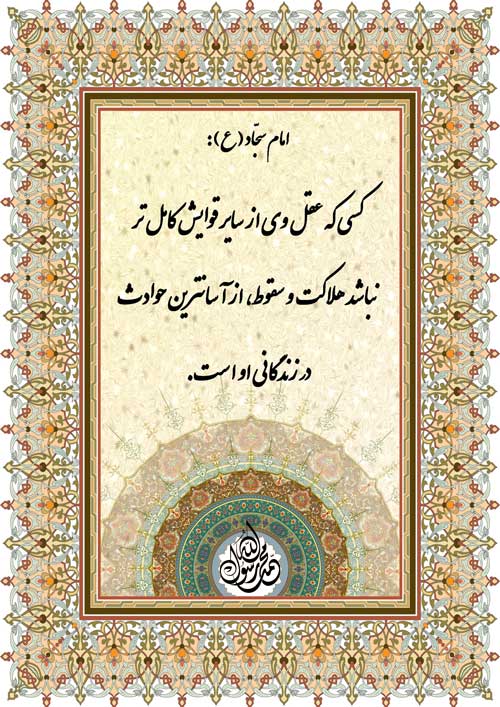 امام سجّاد (ع):
کسی که عقل وی از سایر قوایش کامل تر
نباشد هلاکت و سقوط، از آسانترین حوادث
در زندگانی او است.
محمد رسول الله